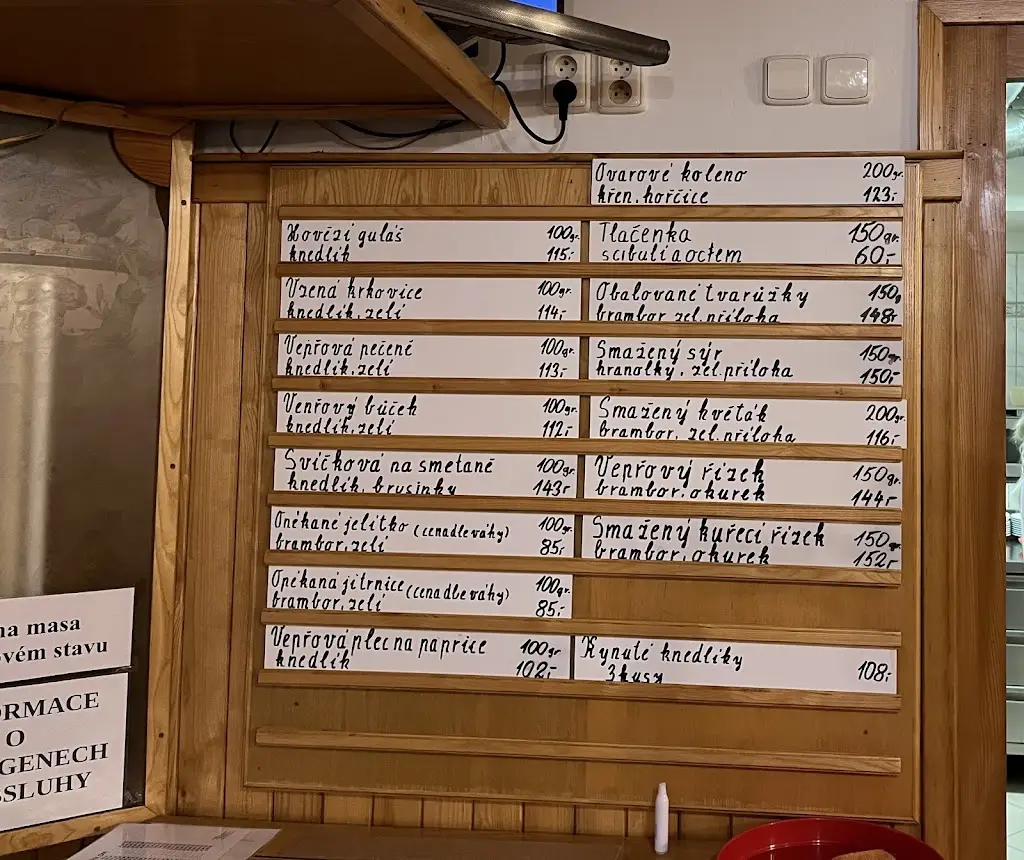 Hovězí guláš 100gr.
knedlík 115,-
Uzená krkovice 100gr.
knedlík, zelí 114,-
Vepřová pečeně 100gr.
knedlík, zelí 113,-
Vepřový bůček 100gr.
knedlík, zelí 112,-
Svíčková na smetaně 100gr.
knedlík, brusinky 143,-
Opékané jelítko (cena dle váhy) 100gr.
brambor, zelí 85,-
Opékaná jitrnice (cena dle váhy) 100gr.
brambor, zelí 85,-
Vepřová plec na paprice 100gr
knedlík 102,-
Ovarové koleno 200gr.
křen, hořčice 123,-
Tlačenka 150gr.
s cibulí a octem 60,-
Obalované tvarůžky 150g
brambor zel. příloha 148,-
Smažený sýr 150gr.
hranolky, zel. příloha 150,-
Smažený květák 200gr.
brambor, zel. příloha 116,-
Vepřový řízek 150gr.
brambor, okurek 144,-
Smažený kuřecí řízek 150gr.
brambor, okurek 152,-
Kynuté knedlíky 108,-
3 kusy
na masa
ovém stavu
ORMACE
O
GENECH
BSLUHY